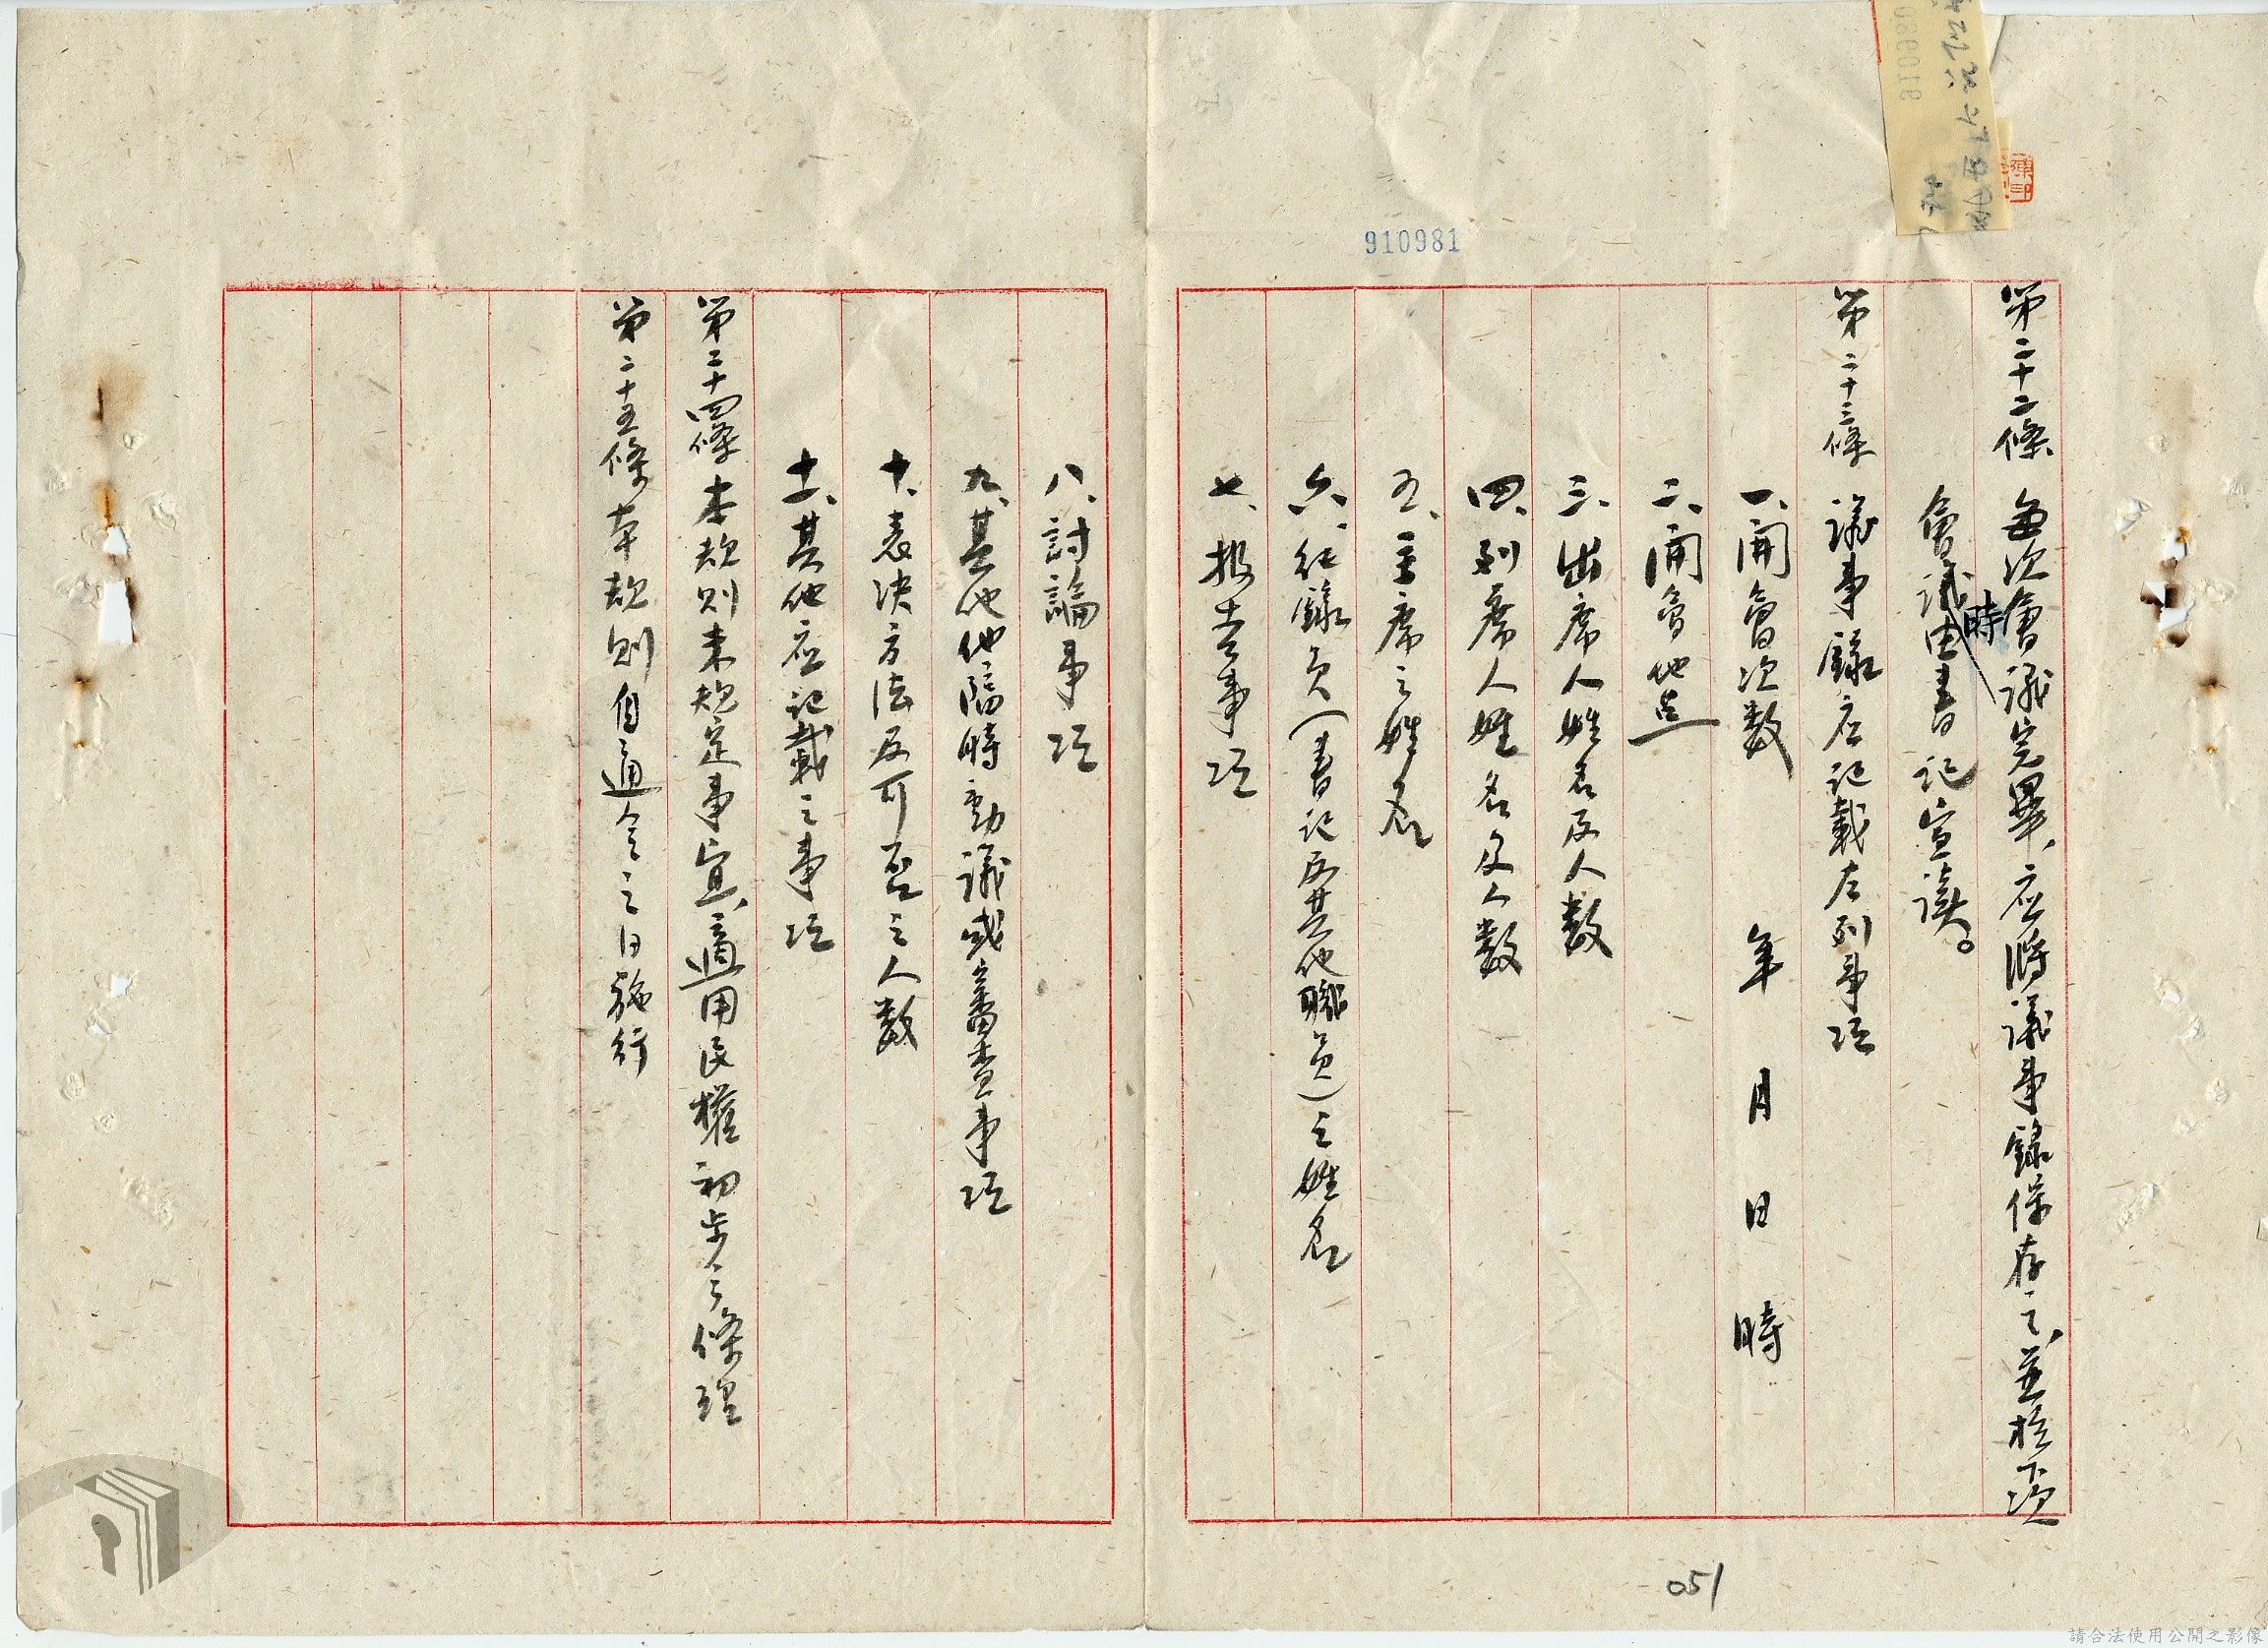 910981
第二十二條 每次會議完畢、应將議事錄保存之、並於下次
會議時由書記宣讀。
第二十三條 議事錄应記載左列事項
一、開會次数 年 月 日 時
二、開會地点
三、出席人姓名及人数
四、列席人姓名及人数
五、主席之姓名
六、紀錄員(書記及其他職員)之姓名
七、報告事項
八、討論事項
九、其他他臨時動議或審查事項
十、表决方法及可否之人数
十一、其他应記載之事項
第二十四條 本規則未規定事宜、適用民權初步之條理
第二十五條 本規則自通令之日施行
051
請合法使用公開之影像